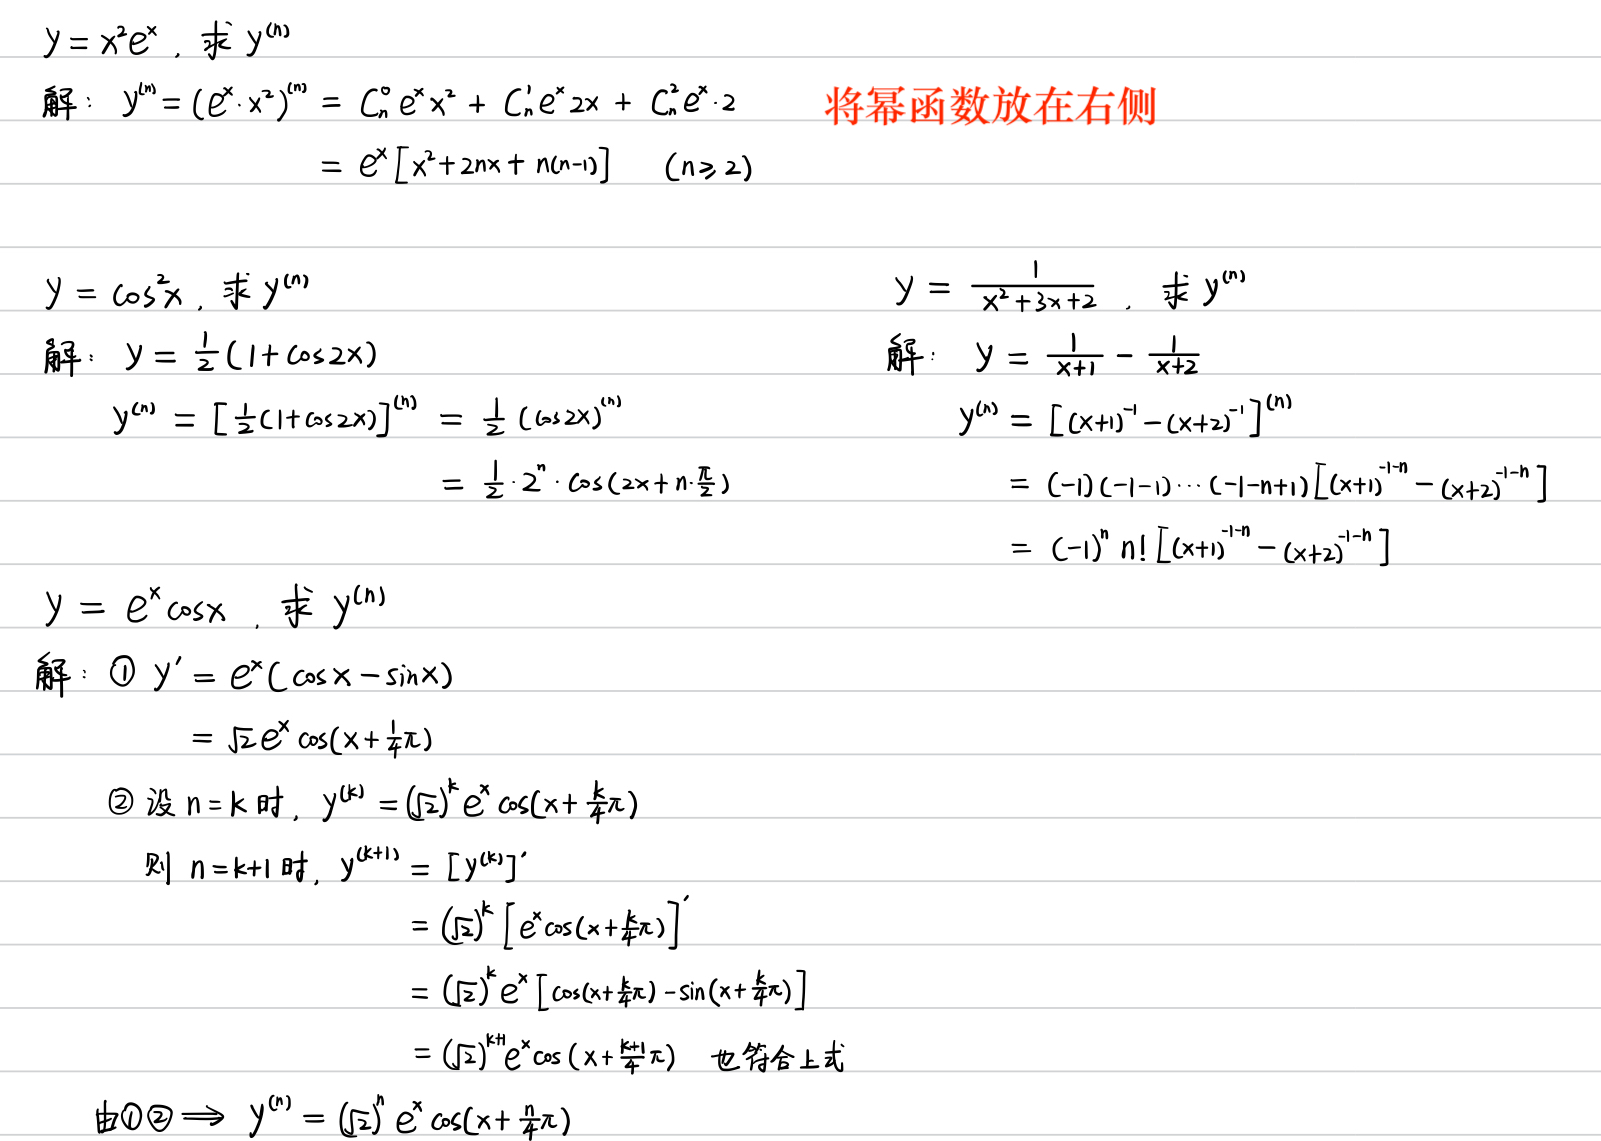 y = x²eˣ , 求 y⁽ⁿ⁾
解: y⁽ⁿ⁾ = (eˣ·x²)⁽ⁿ⁾ = Cₙ⁰ eˣ x² + Cₙ¹ eˣ 2x + Cₙ² eˣ·2
将幂函数放在右侧
= eˣ[x² + 2nx + n(n-1)] (n ≥ 2)
y = cos²x , 求 y⁽ⁿ⁾
解: y = 1/2 (1 + cos2x)
y⁽ⁿ⁾ = [1/2 (1 + cos2x)]⁽ⁿ⁾ = 1/2 (cos2x)⁽ⁿ⁾
= 1/2 · 2ⁿ · cos(2x + n·π/2)
y = 1/(x² + 3x + 2) , 求 y⁽ⁿ⁾
解: y = 1/(x+1) - 1/(x+2)
y⁽ⁿ⁾ = [(x+1)⁻¹ - (x+2)⁻¹]⁽ⁿ⁾
= (-1)(-1-1)···(-1-n+1)[(x+1)⁻¹⁻ⁿ - (x+2)⁻¹⁻ⁿ]
= (-1)ⁿ n! [(x+1)⁻¹⁻ⁿ - (x+2)⁻¹⁻ⁿ]
y = eˣ cosx , 求 y⁽ⁿ⁾
解: ① y′ = eˣ(cosx - sinx)
= √2 eˣ cos(x + 1/4 π)
② 设 n = k 时, y⁽ᵏ⁾ = (√2)ᵏ eˣ cos(x + k/4 π)
则 n = k+1 时, y⁽ᵏ⁺¹⁾ = [y⁽ᵏ⁾]′
= (√2)ᵏ [eˣ cos(x + k/4 π)]′
= (√2)ᵏ eˣ [cos(x + k/4 π) - sin(x + k/4 π)]
= (√2)ᵏ⁺¹ eˣ cos(x + (k+1)/4 π) 也符合上式
由①② ⟹ y⁽ⁿ⁾ = (√2)ⁿ eˣ cos(x + n/4 π)